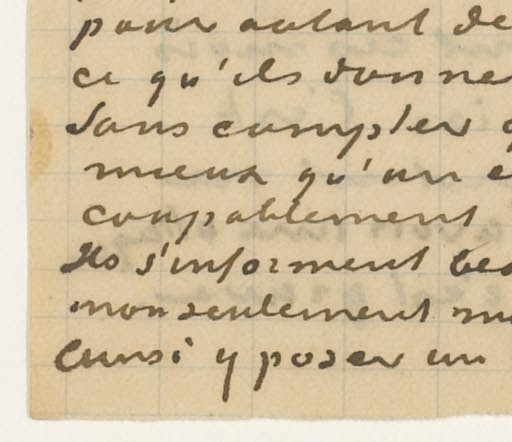 pour autant de
ce qu'ils donne
Sans compter q
mieux qu'un e
coupablement
Ils s'informent bea
non seulement mo
aussi y poser un